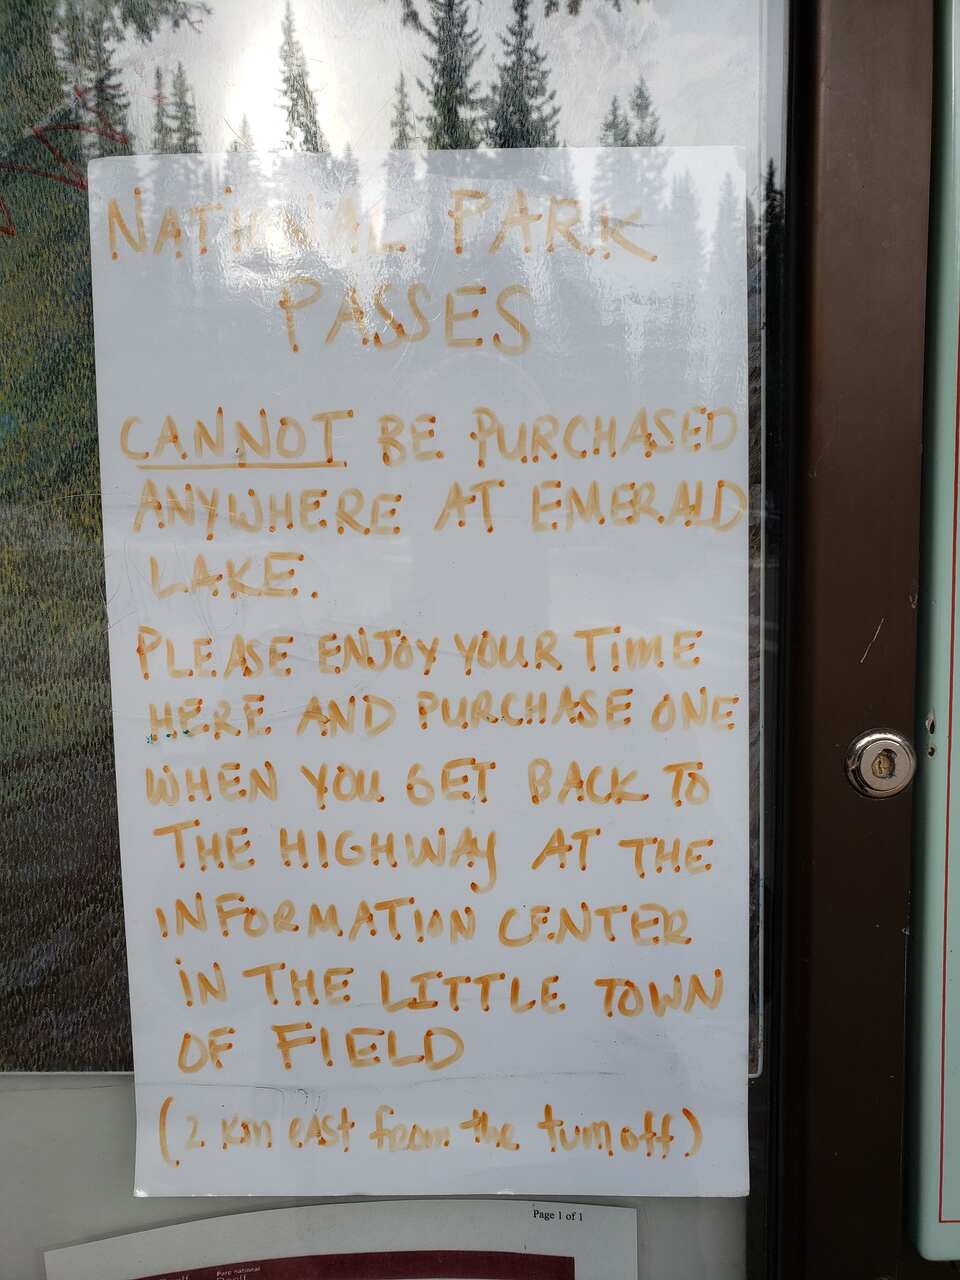 NATIONAL PARK
PASSES
CANNOT BE PURCHASED
ANYWHERE AT EMERALD
LAKE.
PLEASE ENJOY YOUR TIME
HERE AND PURCHASE ONE
WHEN YOU GET BACK TO
THE HIGHWAY AT THE
INFORMATION CENTER
IN THE LITTLE TOWN
OF FIELD
(2 km east from the turn off)
Page 1 of 1
Parc national